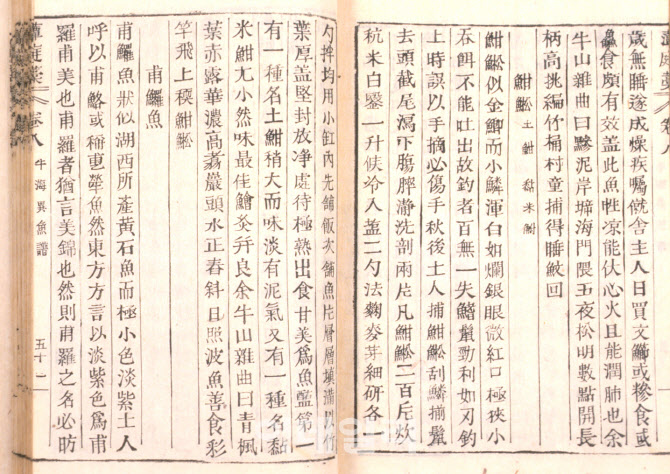 藫庭
卷八
歲無睡遂成燥疾囑僦舍主人日買文鰡或糝食或
食頗有效盖此魚性凉能伏心火且能潤肺也余
牛山雜曲曰黲泥岸墇海門隈五夜松明數點開長
柄高挑編竹桶村童捕得睡鮫回
魽 土魽 黏米魽
魽 似金鯽而小鱗渾白如爛銀眼微紅口極狹小
呑餌不能吐出故釣者百無一失鰭鬣勁利如刃釣
上時誤以手摘必傷手秋後土人捕魽 刮鱗揃鬣
去頭截尾瀉下腸脬瀞洗剖兩片凡魽 二百片放
秔米白鑿一升候冷入盐二勺法麴麥芽細硏各
勺拌均用小缸內先舖飯次舖魚片層層塡滿以竹
葉厚盖堅封放淨處待極熟出食甘美爲魚醢第
有一種名土魽稍大而味淡有泥氣又有一種名黏
米魽尤小然味最佳鱠炙幷良余牛山雜曲曰靑楓
葉赤露華濃高 巖頭水正舂斜日照波魚善食彩
竿飛上稬魽
甫鱺魚
甫鱺魚狀似湖西所產黃石魚而極小色淡紫土人
呼以甫鮥或稱 犖魚然東方方言以淡紫色爲甫
羅甫美也甫羅者猶言美錦也然則甫羅之名必昉
藫庭
卷八 牛海異魚譜 五十一